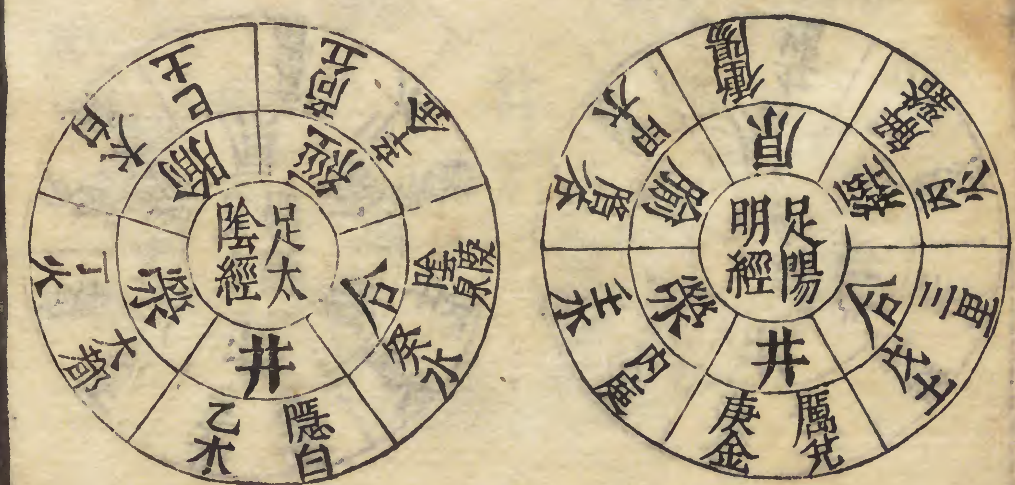 足陽
明經
井
厲兌
庚金
滎
內庭
壬水
腧
陷谷
甲木
原
衝陽
經
解谿
丙火
合
三里
戊土
足太
陰經
井
隱白
乙木
滎
大都
丁火
腧
太白
己土
經
商丘
辛金
合
陰陵泉
癸水